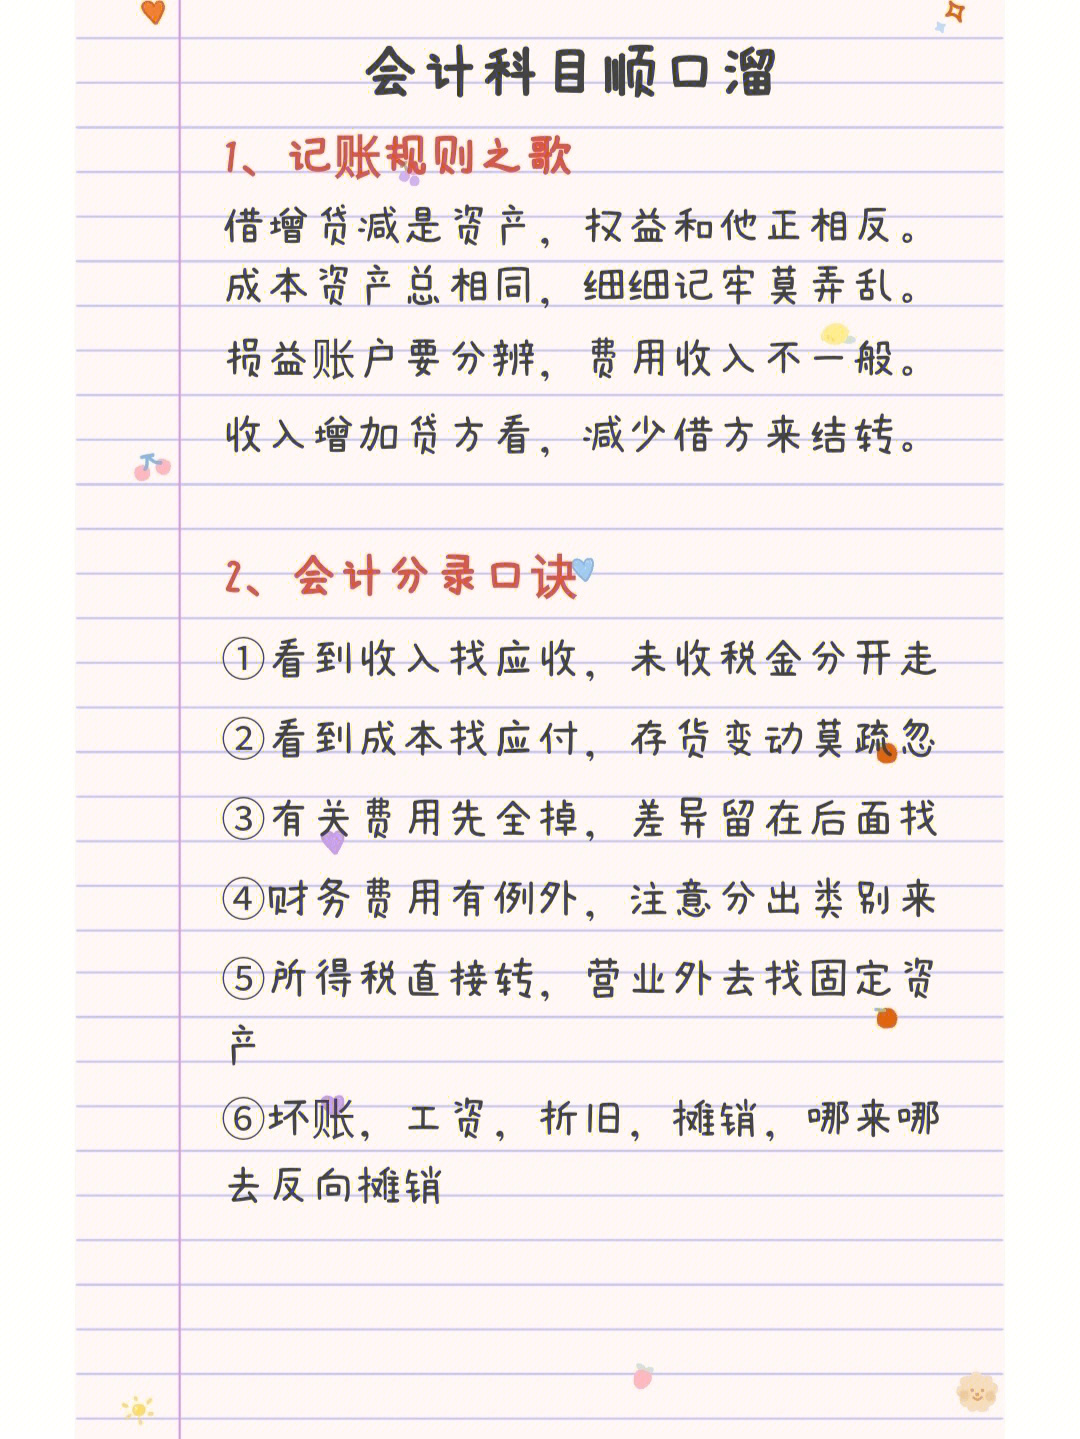 会计科目顺口溜
1、记账规则之歌
借增贷减是资产，权益和他正相反。
成本资产总相同，细细记牢莫弄乱。
损益账户要分辨，费用收入不一般。
收入增加贷方看，减少借方来结转。
2、会计分录口诀
①看到收入找应收，未收税金分开走
②看到成本找应付，存货变动莫疏忽
③有关费用先全掉，差异留在后面找
④财务费用有例外，注意分出类别来
⑤所得税直接转，营业外去找固定资
产
⑥坏账，工资，折旧，摊销，哪来哪
去反向摊销